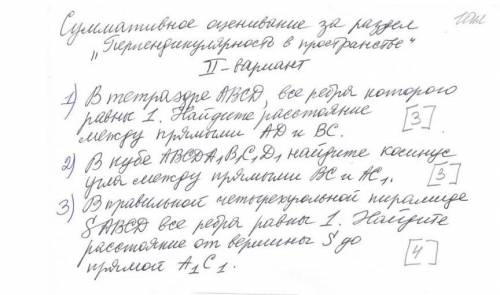 Суммативное оценивание за раздел
„Перпендикулярность в пространстве“
II-вариант
1) В тетраэдре ABCD, все ребра которого
равны 1. Найдите расстояние
между прямыми AD и BC. [3]
2) В кубе ABCDA₁B₁C₁D₁ найдите косинус
угла между прямыми BC и AC₁. [3]
3) В правильной четырехугольной пирамиде
SABCD все ребра равны 1. Найдите
расстояние от вершины S до
прямой A₁C₁. [4]